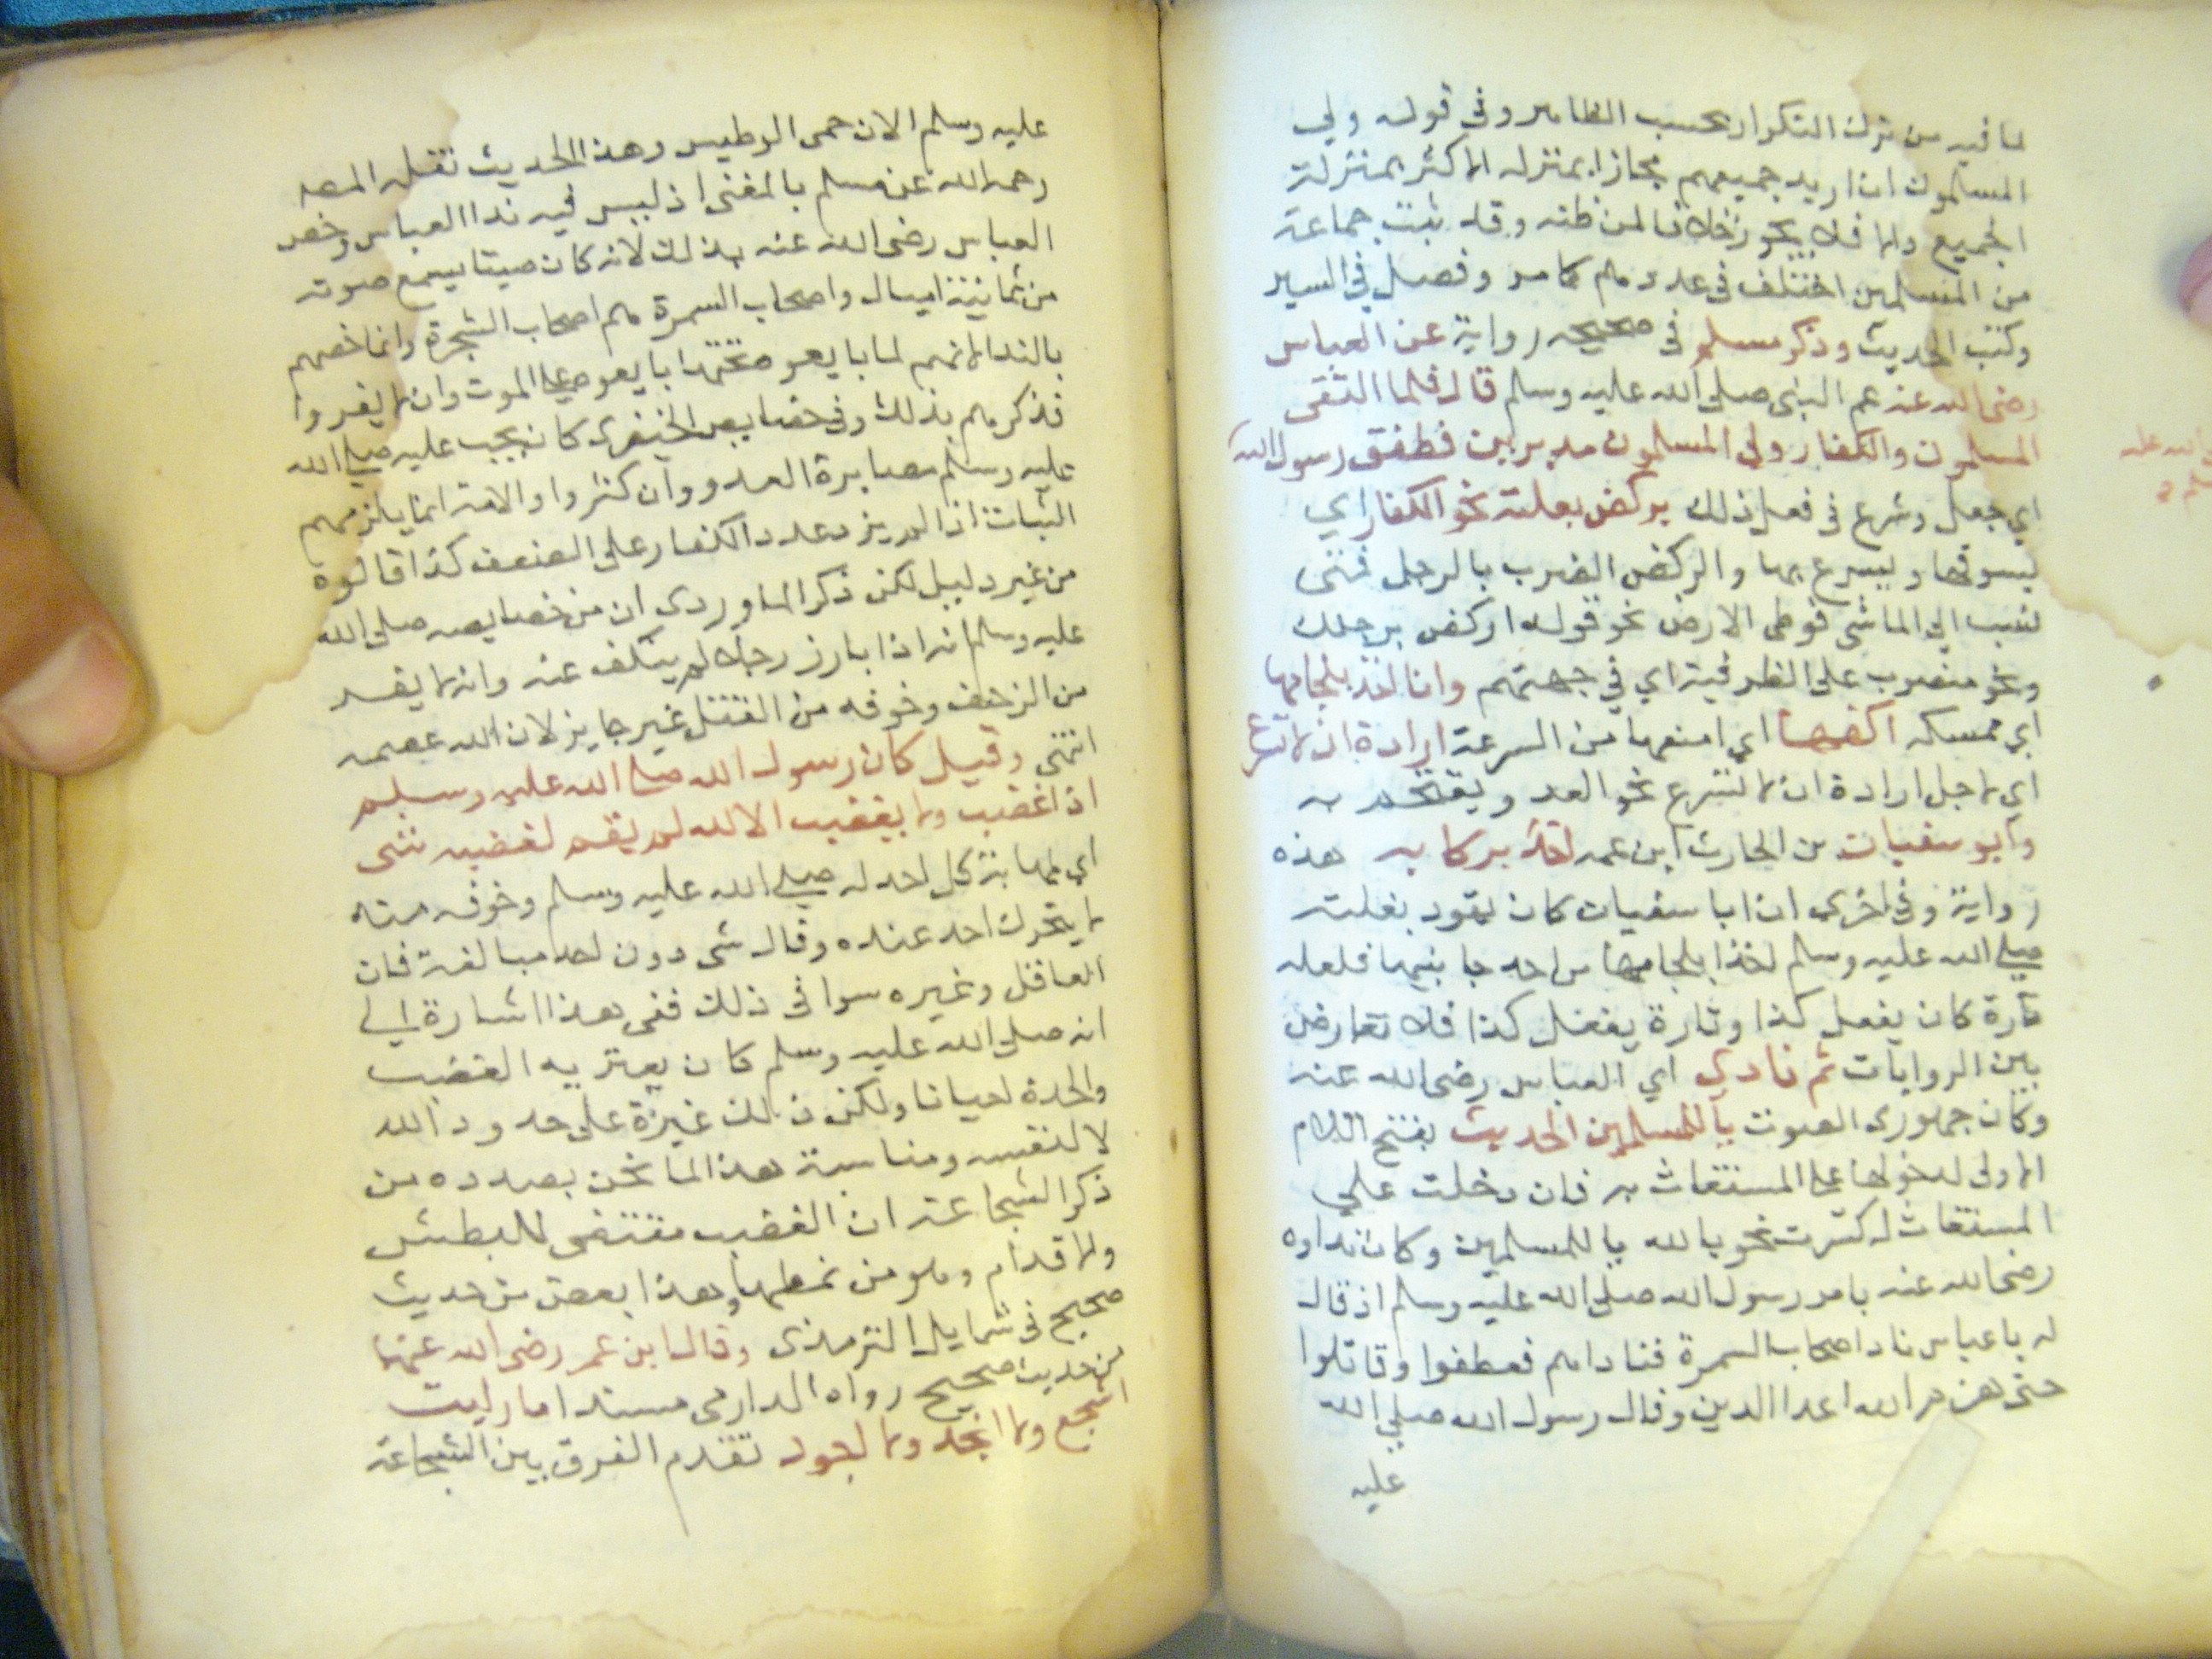 لما فيه من ترك التكرار بحسب الظاهر وفي قوله ولي
المسلمون ان اريد جميعهم مجازا بمنزله الاكثر بمنزلة
الجميع والا فلا يجوز خلافا لمن ظنه وقد ثبت جماعة
من المسلمين اختلف في عددهم كما مر وفصل في السير
وكتب الحديث وذكر مسلم في صحيحه رواية عن العباس
رضى الله عنه عم النبى صلى الله عليه وسلم قال فلما التقى
المسلمون والكفار ولي المسلمون مدبرين فطفق رسول الله
اي جعل وشرع في فعل ذلك يركض بغلته نحو الكفار اي
يسوقها ويسرع بها والركض الضرب بالرجل فمتى
نسب الي الماشي فوطى الارض نحو قوله اركض برجلك
ونحو منصوب على الظرفية اي في جهتهم وانا اخذ بلجامها
اي ممسكه اكفها اي امنعها من السرعة ارادة ان لا تسرع
اي لاجل ارادة ان لا تسرع نحو العدو يقتحم به
وابو سفيان بن الحارث ابن عمه اخذ بركابه هذه
رواية وفي اخرى ان ابا سفيان كان يقود بغلته
صلى الله عليه وسلم اخذا بلجامها من احد جانبيها فلعله
تارة كان يفعل كذا وتارة يفعل كذا فلا تعارض
بين الروايات ثم نادي اي العباس رضى الله عنه
وكان جهوري الصوت يا للمسلمين الحديث بفتح اللام
الاولى لدخولها على المستغاث به فان دخلت علي
المستغاث له كسرت نحو يا لله يا للمسلمين وكان نداوه
رضى الله عنه بامر رسول الله صلى الله عليه وسلم اذ قال
له يا عباس ناد اصحاب السمرة فناداهم فعطفوا وقاتلوا
حتى هزم الله اعدا الدين وقال رسول الله صلي الله
عليه
عليه وسلم الان حمى الوطيس وهذا الحديث نقله المص
رحمه الله عن مسلم بالمعنى اذ ليس فيه ندا العباس وخص
العباس رضى الله عنه بذلك لانه كان صيتا يسمع صوته
من ثمانية اميال واصحاب السمرة هم اصحاب الشجرة وانما خصهم
بالندا لانهم لما بايعوه تحتها بايعوه على الموت وان لا يفروا
فذكرهم بذلك وفي خصايص الخيضري كان يجب عليه صلى الله
عليه وسلم مصابرة العدو وان كثروا والامة انما يلزمهم
الثبات اذا لم يزد عدد الكفار على الضعف كذا قالوه
من غير دليل لكن ذكر الماوردي ان من خصايصه صلى الله
عليه وسلم انه اذا بارز رجلا لم ينكف عنه وانه لا يفر
من الزحف وخوفه من القتل غير جايز لان الله عصمه
انتهى وقيل كان رسول الله صلى الله عليه وسلم
اذا غضب ولا يغضب الا لله لم يقم لغضبه شى
اي لمهابة كل احد له صلى الله عليه وسلم وخوفه منه
لا يتحرك احد عنده وقال شي دون احد مبالغة فان
العاقل وغيره سوا في ذلك ففى هذا اشارة الي
انه صلى الله عليه وسلم كان يعتريه الغضب
والحدة احيانا ولكن ذلك غيرة على حدود الله
لا لنفسه ومناسبة هذا لما نحن بصدده من
ذكر الشجاعة ان الغضب مقتضى للبطش
والاقدام وهو من نمطها وهذا بعض من حديث
صحيح في شمايل الترمذي وقال ابن عمر رضى الله عنهما
من حديث صحيح رواه الدارمى مسندا ما رايت
اشجع ولا انجد ولا اجود تقدم الفرق بين الشجاعة